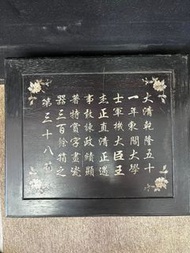 大清乾隆五十
一年東閣大學
士軍機大臣王
杰正直清正遇
事敢諫政績顯
著特賞字畫瓷
器三百餘箱之
第三十八箱